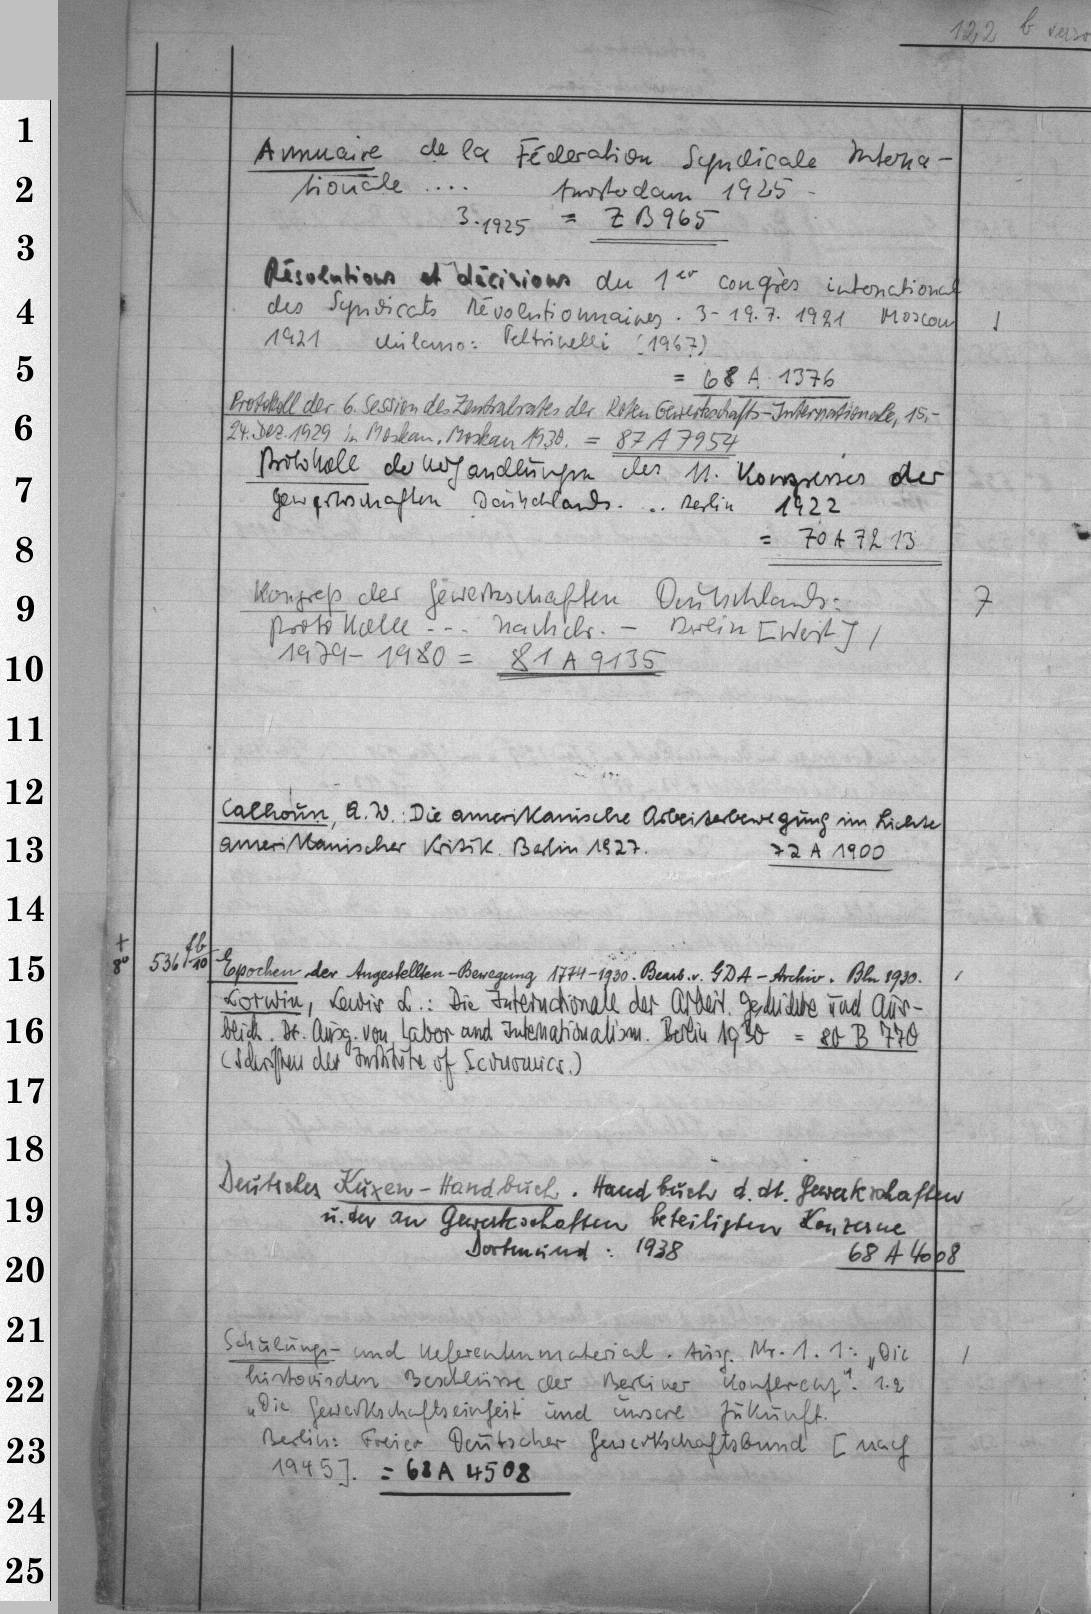 122 b verso
1
Annuaire de la Féderation Syndicale Interna-
2
tionale .... Amsterdam 1925 -
3. 1925 = ZB 965
3
Résolutions et décisions du 1er congrès international
4
des Syndicats Révolutionnaires. 3-19.7. 1921 Moscou
1921 Milano: Feltrinelli (1967)
5
= 68 A 1376
Protokoll der 6. Session des Zentralrates der Roten Gewerkschafts-Internationale, 15.-
6
24. Dez. 1929 in Moskau. Moskau 1930. = 87 A 7954
Protokoll der Verhandlungen des 11. Kongresses der
7
Gewerkschaften Deutschlands. ... Berlin 1922
8
= 70 A 7213
9
Kongreß der Gewerkschaften Deutschlands: 7
Protokolle --- Nachdr. - Berlin [West] /
10
1979-1980 = 81 A 9135
11
12
Calhoun, A.W.: Die amerikanische Arbeiterbewegung im Lichte
13
amerikanischer Kritik. Berlin 1927. 72 A 1900
14
+ fb
15
8° 536/10 Epochen der Angestellten-Bewegung 1774-1930. Bearb. v. GDA-Archiv. Bln 1930.
Lorwin, Lewis L.: Die Internationale der Arbeit. Geschichte und Aus-
16
blick. Dt. Ausg. von Labor and Internationalism. Berlin 1930 = 80 B 770
(Schriften des Institute of Economics.)
17
18
Deutsches Kuxen-Handbuch. Handbuch d. dt. Gewerkschaften
19
u. der an Gewerkschaften beteiligten Konzerne
Dortmund: 1938 68 A 4008
20
21
Schulungs- und Referentenmaterial. Ausg. Nr. 1. 1: „Die
22
historischen Beschlüsse der Berliner Konferenz". 1.2
„Die Gewerkschaftseinheit und unsere Zukunft.
23
Berlin: Freier Deutscher Gewerkschaftsbund [nach
1945]. = 68 A 4508
24
25